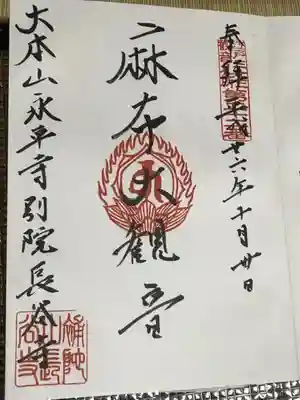 奉拝 平成廿六年十月廿日
麻布大観音
大本山永平寺別院長谷寺